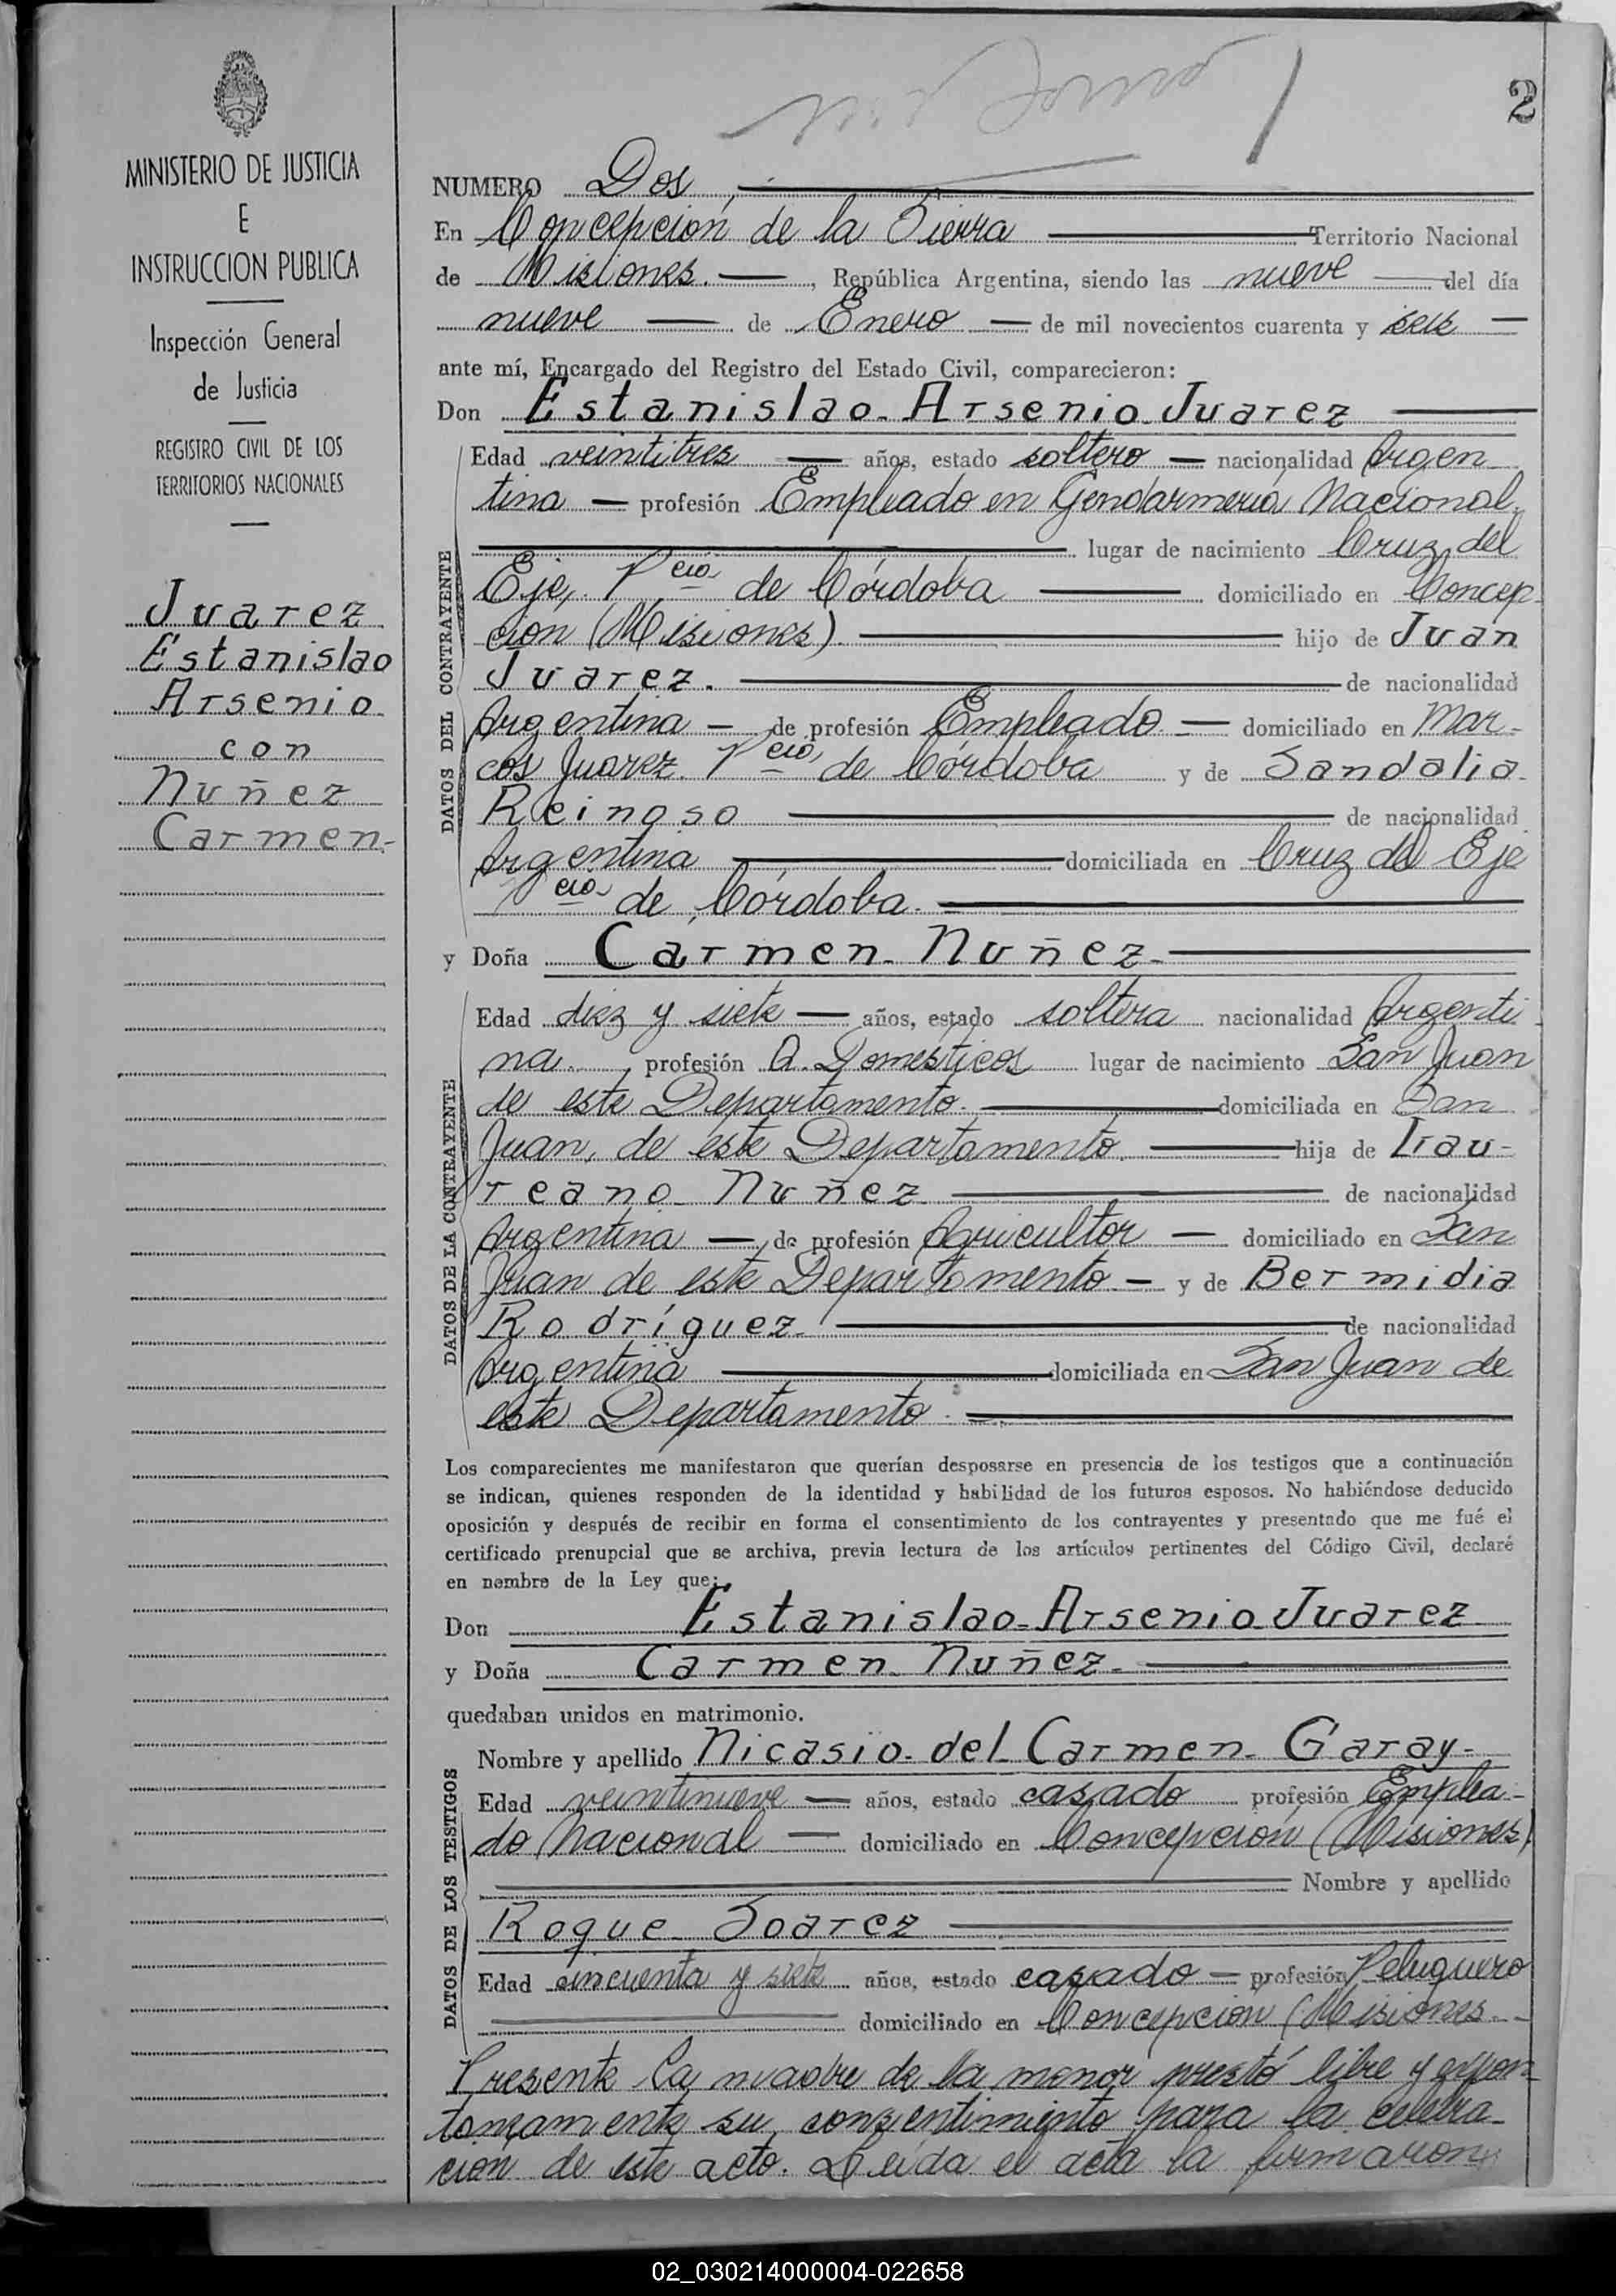 2
MINISTERIO DE JUSTICIA
E
INSTRUCCION PUBLICA
Inspección General
de Justicia
REGISTRO CIVIL DE LOS
TERRITORIOS NACIONALES
Juarez
Estanislao
Arsenio
con
Nuñez
Carmen-
NUMERO Dos,
En Concepción de la Sierra Territorio Nacional
de Misiones. , República Argentina, siendo las nueve del día
nueve de Enero de mil novecientos cuarenta y seis
ante mí, Encargado del Registro del Estado Civil, comparecieron:
Don Estanislao-Arsenio-Juarez
DATOS DEL CONTRAYENTE
Edad veintitres años, estado soltero nacionalidad Argen-
tina profesión Empleado en Gendarmería Nacional.
lugar de nacimiento Cruz del
Eje, Pcia de Córdoba domiciliado en Concep-
ción (Misiones). hijo de Juan
Juarez. de nacionalidad
Argentina de profesión Empleado domiciliado en Mar-
cos Juarez. Pcia de Córdoba y de Sandalia
Reinoso de nacionalidad
Argentina domiciliada en Cruz del Eje
Pcia de Córdoba.
y Doña Carmen-Nuñez-
DATOS DE LA CONTRAYENTE
Edad diez y siete años, estado soltera nacionalidad Argenti-
na. profesión Q. Domésticos lugar de nacimiento San Juan
de este Departamento. domiciliada en San
Juan, de este Departamento. hija de Lrau-
reano Nuñez de nacionalidad
Argentina de profesión Agricultor domiciliado en San
Juan de este Departamento y de Bermidia
Rodríguez- de nacionalidad
Argentina domiciliada en San Juan de
este Departamento.
Los comparecientes me manifestaron que querían desposarse en presencia de los testigos que a continuación
se indican, quienes responden de la identidad y habilidad de los futuros esposos. No habiéndose deducido
oposición y después de recibir en forma el consentimiento de los contrayentes y presentado que me fué el
certificado prenupcial que se archiva, previa lectura de los artículos pertinentes del Código Civil, declaré
en nombre de la Ley que:
Don Estanislao-Arsenio-Juarez
y Doña Carmen-Nuñez-
quedaban unidos en matrimonio.
DATOS DE LOS TESTIGOS
Nombre y apellido Nicasio-del-Carmen-Garay-
Edad veintinueve años, estado casado profesión Emplea-
do Nacional domiciliado en Concepción (Misiones)
Nombre y apellido
Roque Soarez
Edad cincuenta y siete años, estado casado profesión Peluquero
domiciliado en Concepción (Misiones.-
Presente la madre de la menor prestó libre y espon-
taneamente su consentimiento para la celebra-
ción de este acto. Leída el acta la firmaron
02_030214000004-022658